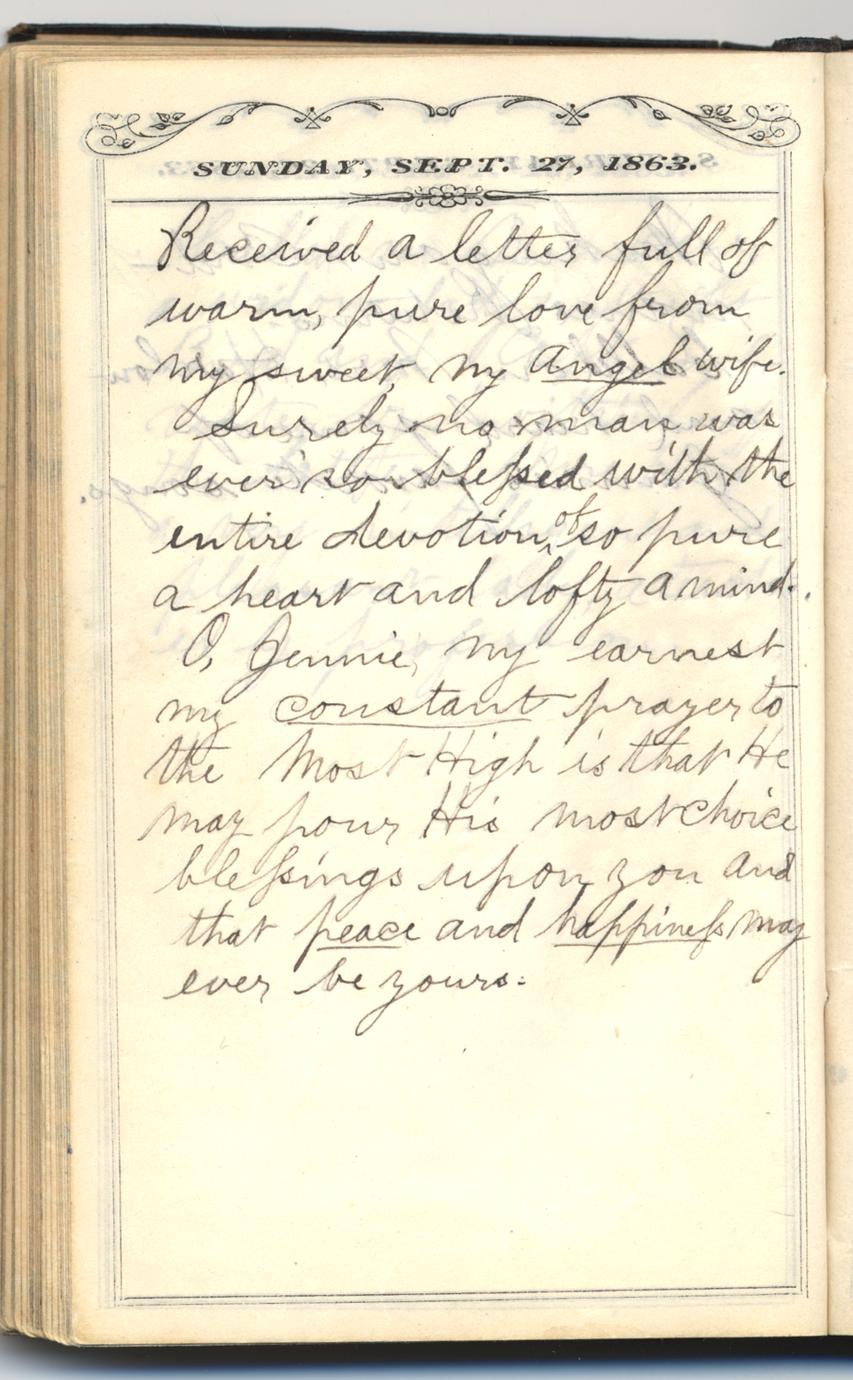 SUNDAY, SEPT. 27, 1863.
Received a letter full of
warm, pure love from
my sweet, my Angel wife.
Surely no man was
ever so blessed with the
entire devotion of so pure
a heart and lofty a mind.
O, Jennie, my earnest
my constant prayer to
the Most High is that He
may pour His most choice
blessings upon you and
that peace and happiness may
ever be yours.